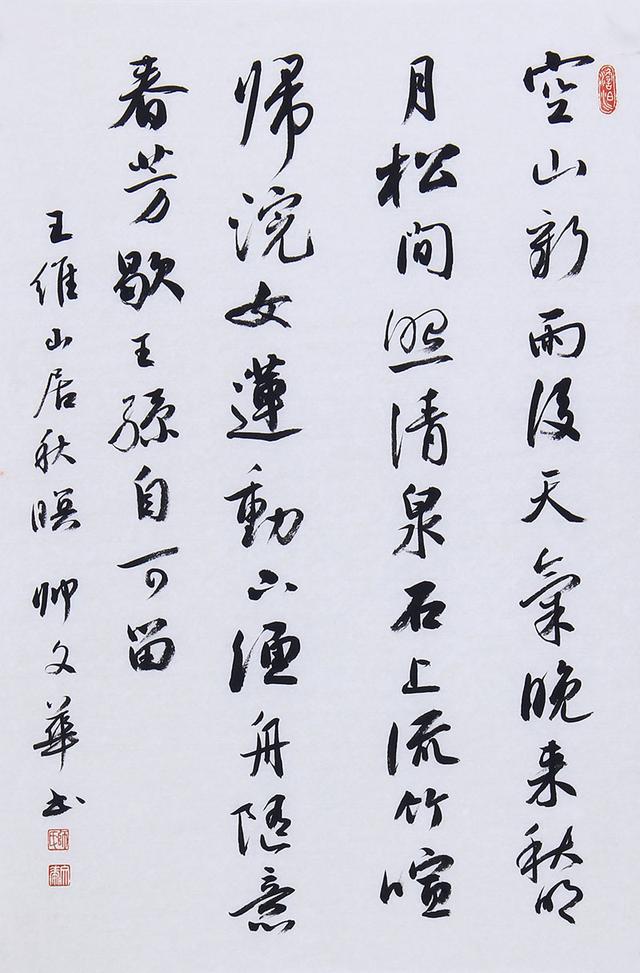 空山新雨後天氣晚来秋明
月松間照清泉石上流竹喧
歸浣女蓮動下漁舟隨意
春芳歇王孫自可留
王維山居秋暝 帥文華書